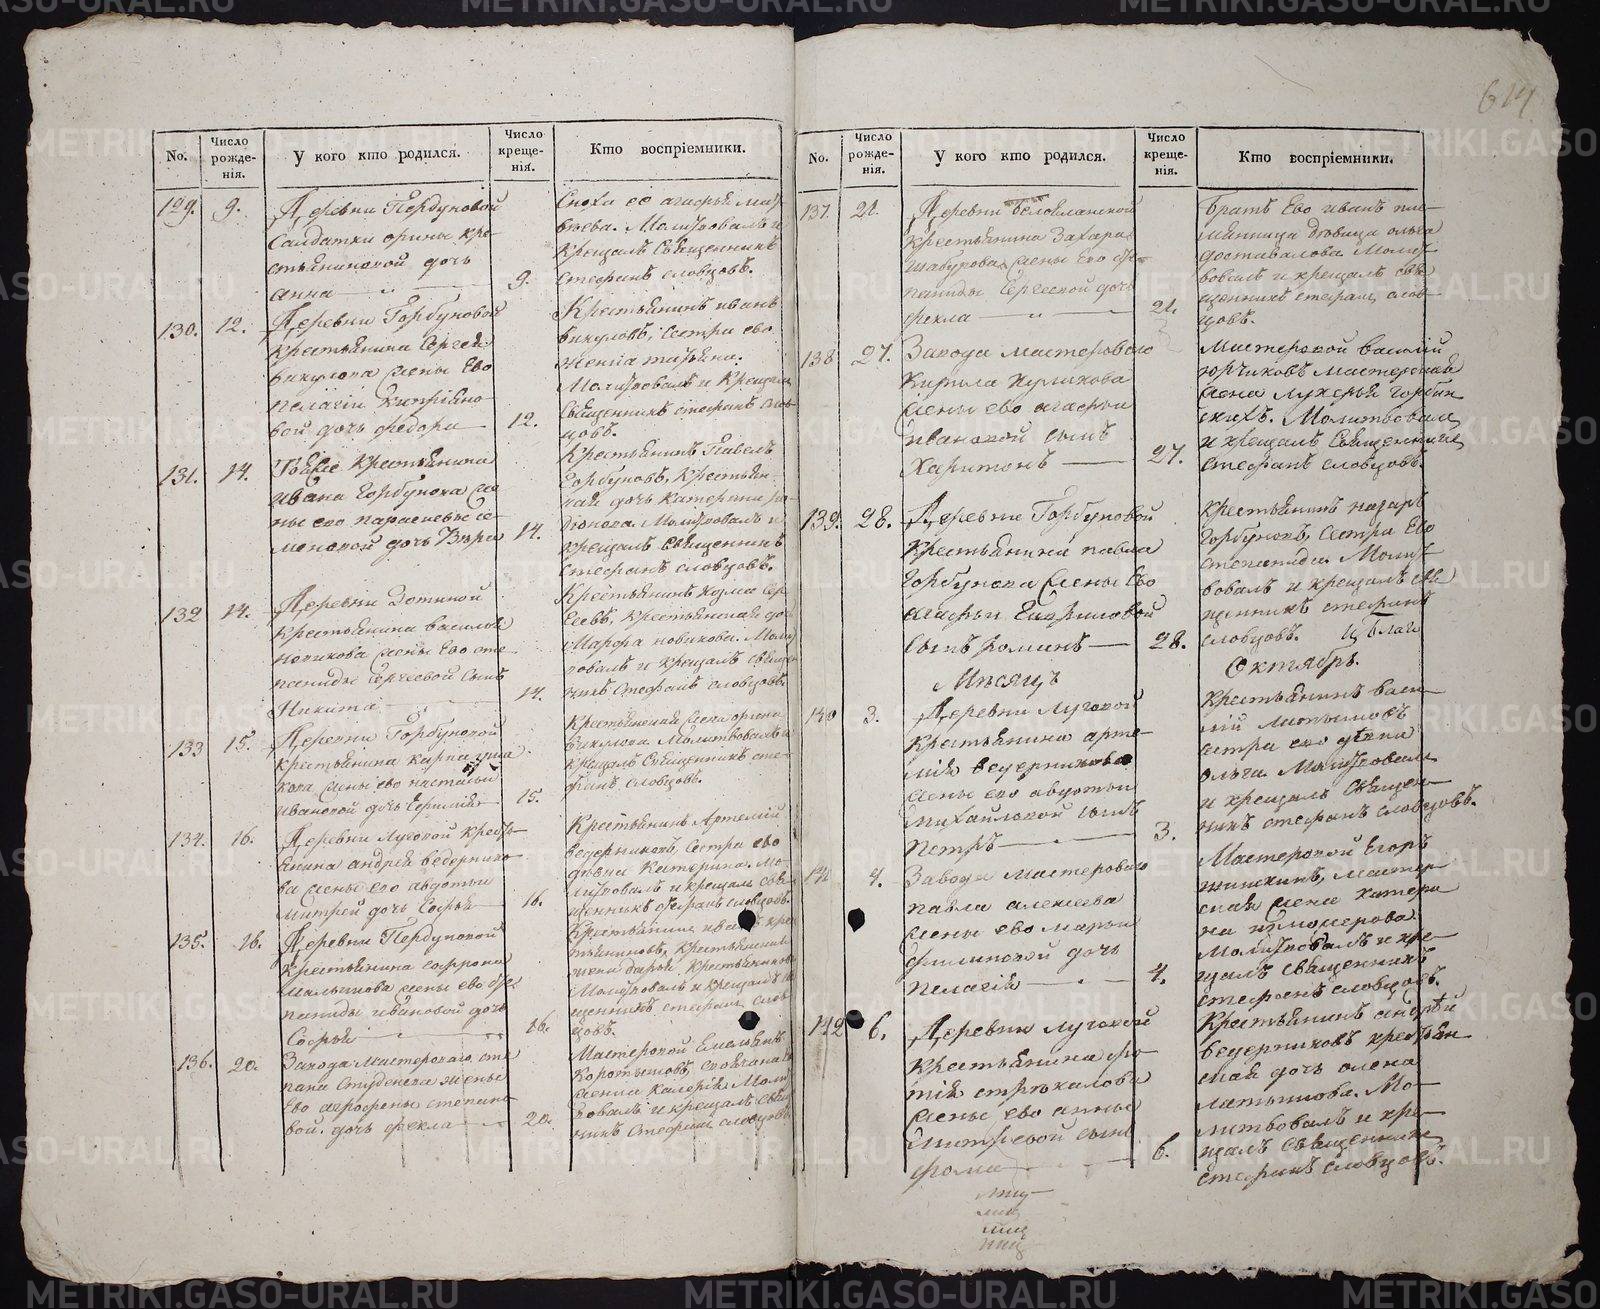 614
No.
Число рожде-нія.
У кого кто родился.
Число креще-нія.
Кто воспріемники.
129. 9.
Деревни Пердуновой
Салдатки орины кре-
стьяниновой дочь
анна
9.
Сноха ее агафья мат-
веева. Молитвовалъ и
крещалъ Священникъ
стефанъ словцовъ.
130. 12.
Деревни Горбуновой
крестьянина Сергея
викулова жены Ево
пелагіи кипріяно-
вой дочь федора
12.
Крестьянинъ иванъ
викуловъ, Сестра ево
татьяна.
Молитвовалъ и Крещалъ
Священникъ стефанъ слов-
цовъ.
131. 14.
Тойже крестьянина
ивана Горбунова же-
ны ево парасковьи се-
меновой дочь Вѣра
14.
Крестьянинъ Павелъ
Горбуновъ, Крестьян-
ская дочь катерина
Молитвовалъ и
крещалъ Священникъ
Стефанъ словцовъ.
132 14.
Деревни Зотиной
крестьянина василья
новикова жены Ево сте-
паниды Сергеевой Сынъ
Никита
14.
Крестьянинъ козма Сер-
геевъ, крестьянская дочь
Марфа новикова. Молит-
вовалъ и крещалъ Священ-
никъ Стефанъ Словцовъ.
133 15.
Деревни Горбуновой
крестьянина карпа
жены ево настасьи
ивановой дочь
15.
Крестьянская жена орина
викулова. Молитвовалъ и
крещалъ Священникъ сте-
фанъ словцовъ.
134. 16.
Деревни Луговой крестья-
янина андрея ведернико-
ва жены ево авдотьи
дочь Софья
16.
Крестьянинъ Артемій
ведерниковъ, Сестра ево
дѣвка Катерина. Мо-
литвовалъ и крещалъ свя-
щенникъ стефанъ словцовъ.
135. 16.
Деревни Пердуновой
крестьянина софрона
малыгнова жены ево сте-
паниды ивановой дочь
Софья
16.
Крестьянинъ иванъ кре-
стьяниновъ, крестьянская
жена дарья Крестьянинова
Молитвовалъ и крещалъ свя-
щенникъ стефанъ слов-
цовъ.
136. 20.
Завода Мастероваго сте-
пана Студенова жены
Ево агрофены степано-
вой дочь фекла
20.
Мастеровой Емельянъ
коротыгновъ,
Молит-
вовалъ и крещалъ Священ-
никъ Стефанъ словцовъ.
No.
Число рожде-нія.
У кого кто родился.
Число креще-нія.
Кто воспріемники.
137. 21.
Деревни
крестьянина Захара
Шабурова жены Ево сте-
паниды Сергеевой дочь
фекла
21.
Братъ Ево иванъ пле-
мянница дѣвица ольга
доставалова Молит-
вовалъ и крещалъ свя-
щенникъ стефанъ слов-
цовъ.
138 27.
Завода мастероваго
Кирила Куликова
жены ево агафьи
ивановой сынъ
Харитонъ
27.
Мастеровой василій
юрчиковъ мастерская
жена лукерья горбун-
скихъ. Молитвовалъ
и крещалъ Священникъ
стефанъ словцовъ.
139. 28.
Деревни Горбуновой
крестьянина павла
горбунова жены Ево
агафьи Гавриловой
сынъ романъ
28.
крестьянинъ назаръ
горбуновъ, Сестра Ево
степанида. Молит-
вовалъ и крещалъ свя-
щенникъ стефанъ
словцовъ.
Мѣсяцъ
Октябрь.
140 3.
Деревни Луговой
крестьянина арте-
мія ведерникова
жены ево авдотьи
михайловой сынъ
петръ
3.
крестьянинъ васи-
лій латышовъ
сестра ево дѣвка
ольга. Молитвовалъ
и крещалъ Священ-
никъ стефанъ словцовъ.
141 4.
Завода мастероваго
павла алексеева
жены ево марьи
филиповой дочь
пелагія
4.
Мастеровой Егоръ
шишкинъ, мастер-
ская жена катери-
на
Молитвовалъ и кре-
щалъ священникъ
стефанъ словцовъ.
142 6.
Деревни луговой
крестьянина фо-
тія стрѣкалова
жены ево анны
дмитревой сынъ
фома
6.
Крестьянинъ андрей
ведерниковъ крестьян-
ская дочь олена
латышова. Мо-
литвовалъ и кре-
щалъ священникъ
стефанъ словцовъ.